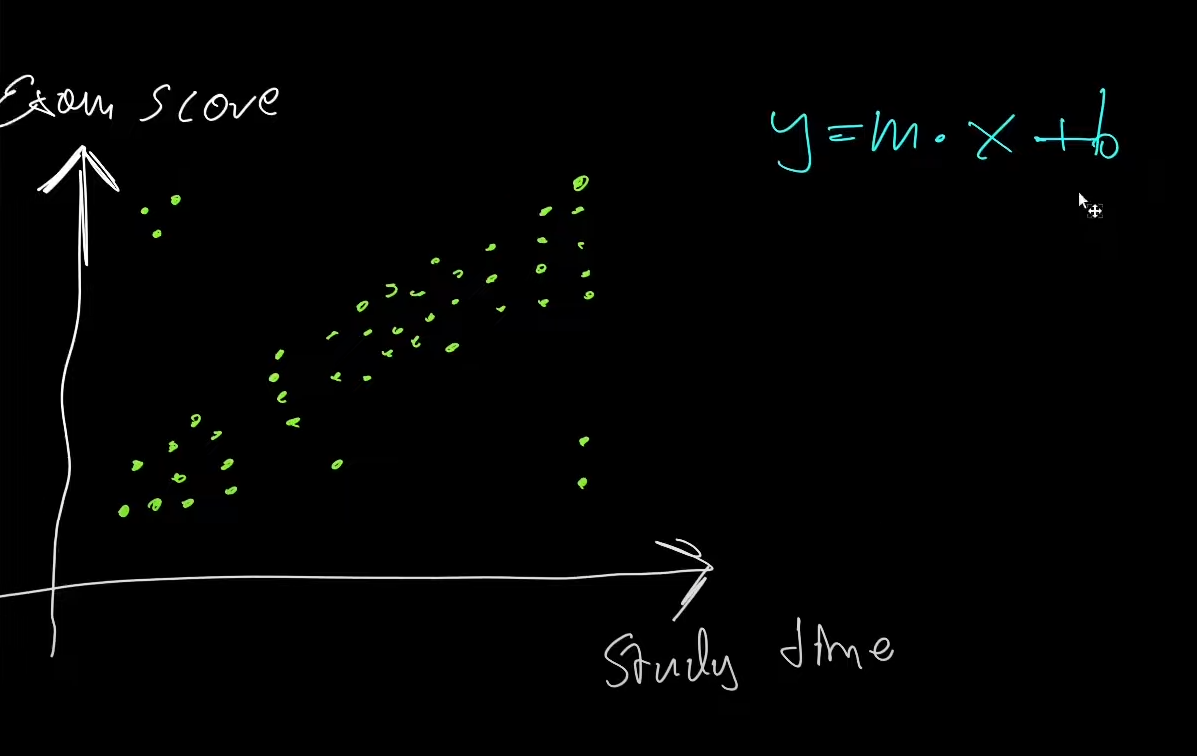 Exam score
y = m · x + b
Study time